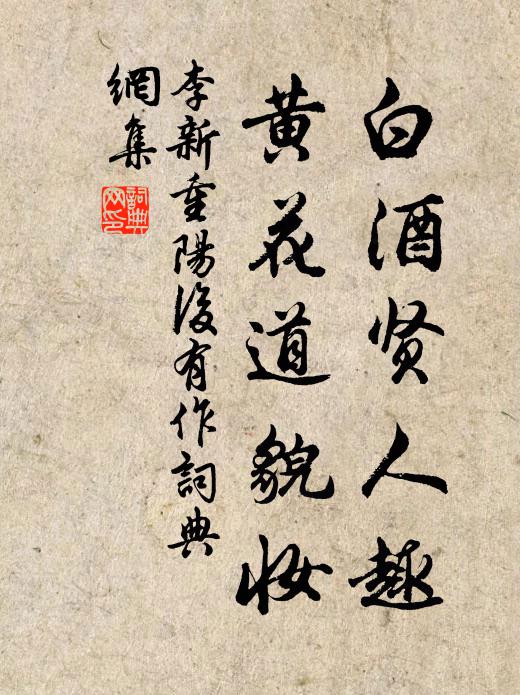 白酒贤人趣
黄花道貌妆
李新重陽後有作詞典
網集
詞典
网印